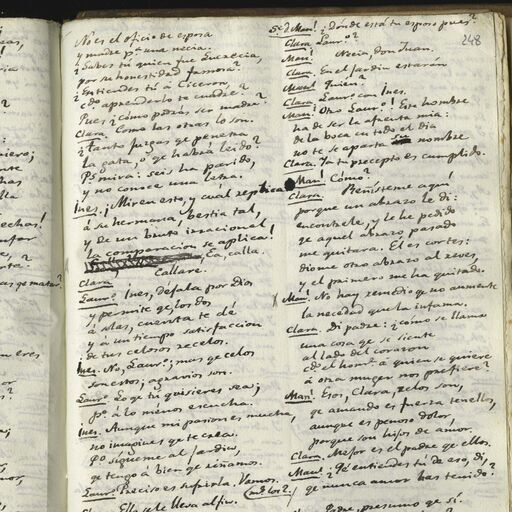 No es el oficio de esposa
y madre pª una necia.
¿Sabes tú quien fue Lucrecia,
por su honestidad famosa?
¿Entiendes tú a Cicerón,
cdo aprenderlo te cuadre?
Pues ¿cómo podrás ser madre?
Clara. Como las otras lo son.
¿tanto juzgas qe penetra
la gata, ó qe habrá leido?
Ps paría: seis ha parido,
y no conoce una letra.
Ines. ¡Miren esto, y cuál replica
á su hermana, bestia tal,
y de un bruto irracional
la comparacion se aplica!
Ea, calla.
Clara
Callaré.
Laurº Ines, déjala por dios
y permite qe los dos
á solas, cuenta te dé
y á un tiempo satisfaccion
de tus celosos recelos.
Ines. No, Laurº; mas qe celos
son estos; agravios son.
Laurº Lo qe tú quisieres sea;
pº á lo menos escucha.
Ines. Aunque mi pasion es mucha,
no imagines qe te crea.
Pº sígueme al jardin,
qe tengo á bien qe riñamos.
Laurº Preciso es sufrirla. Vamos.
(vnse los 2)
Clara. Ella se le lleva al fin.
248
Sr d. Manl ¿Dónde está tu esposo pues?
Clara. Laurº?
Manl Necia, don Juan.
Clara. En el jardin estarán
Manl Quién?
Clara. Laurº con Ines.
Manl Otro Laurº! Este hombre
ha de ser la afrenta mia:
de la boca en todo el dia
no te se aparta su nombre
Clara. Ya tu precepto es cumplido.
Manl Cómo?
Clara. Riéñsteme aquí
porque un abrazo le dí:
encontréle, y le he pedido
qe aquel abrazo pasado
me quitara. El es cortes:
dióme otro abrazo al reves,
y el primero me ha quitado.
Manl No hay remedio qe no aumente
la necedad que la infama.
Clara. Di padre: ¿cómo se llama
una cosa qe se siente
al lado del corazon
cdo el homb.e á quien se quiere
á otra muger nos prefiere?
Manl Esos, Clara, celos son,
qe amando es fuerza tenellos,
aunque es penoso dolor,
porque son hijos de amor.
Clara. Mejor es el padre qe ellos.
Manl ¿Qé entiendes tú de eso, di,
qe nunca amor has tenido?
Padre, presumo qe sí